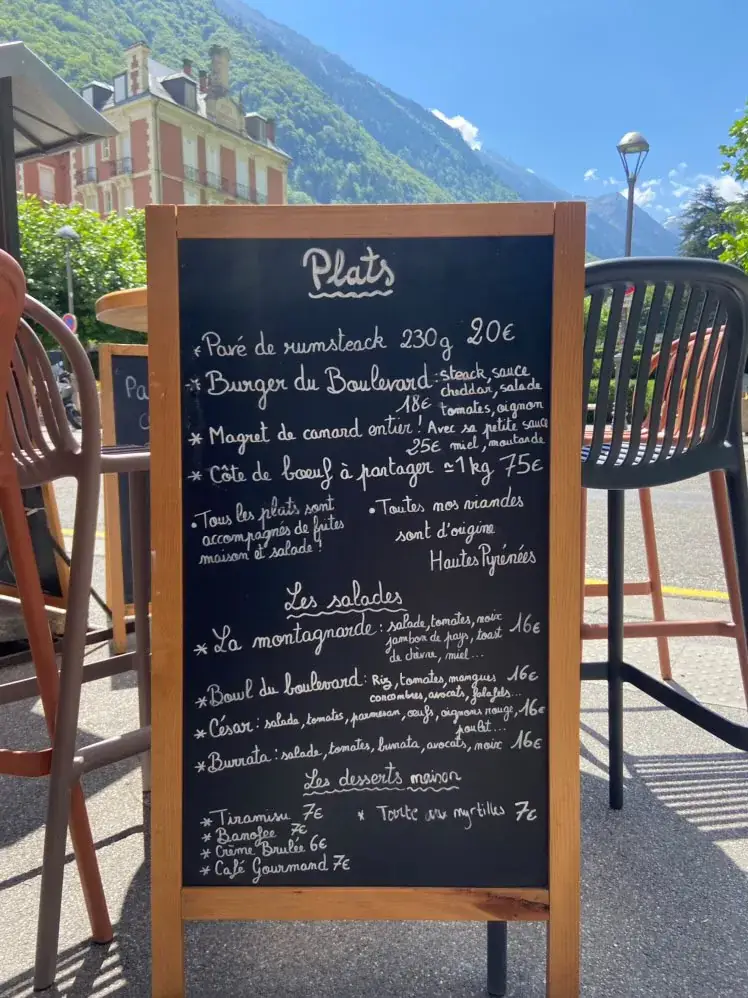 Plats
* Pavé de rumsteack 230g 20€
* Burger du Boulevard : steack, sauce
cheddar, salade
18€ tomates, oignon
* Magret de canard entier ! Avec sa petite sauce
25€ miel, moutarde
* Côte de bœuf à partager ≃1kg 75€
• Tous les plats sont
accompagnés de frites
maison et salade !
• Toutes nos viandes
sont d'origine
Hautes Pyrénées
Les salades
* La montagnarde : salade, tomates, noix 16€
jambon de pays, toast
de chèvre, miel...
* Bowl du boulevard : Riz, tomates, mangues 16€
concombres, avocats, falafels...
* César : salade, tomates, parmesan, œufs, oignons rouge, 16€
poulet...
* Burrata : salade, tomates, burrata, avocats, noix 16€
Les desserts maison
* Tiramisu 7€
* Banofee 7€
* Crème Brulée 6€
* Café Gourmand 7€
* Tarte aux myrtilles 7€
Pa